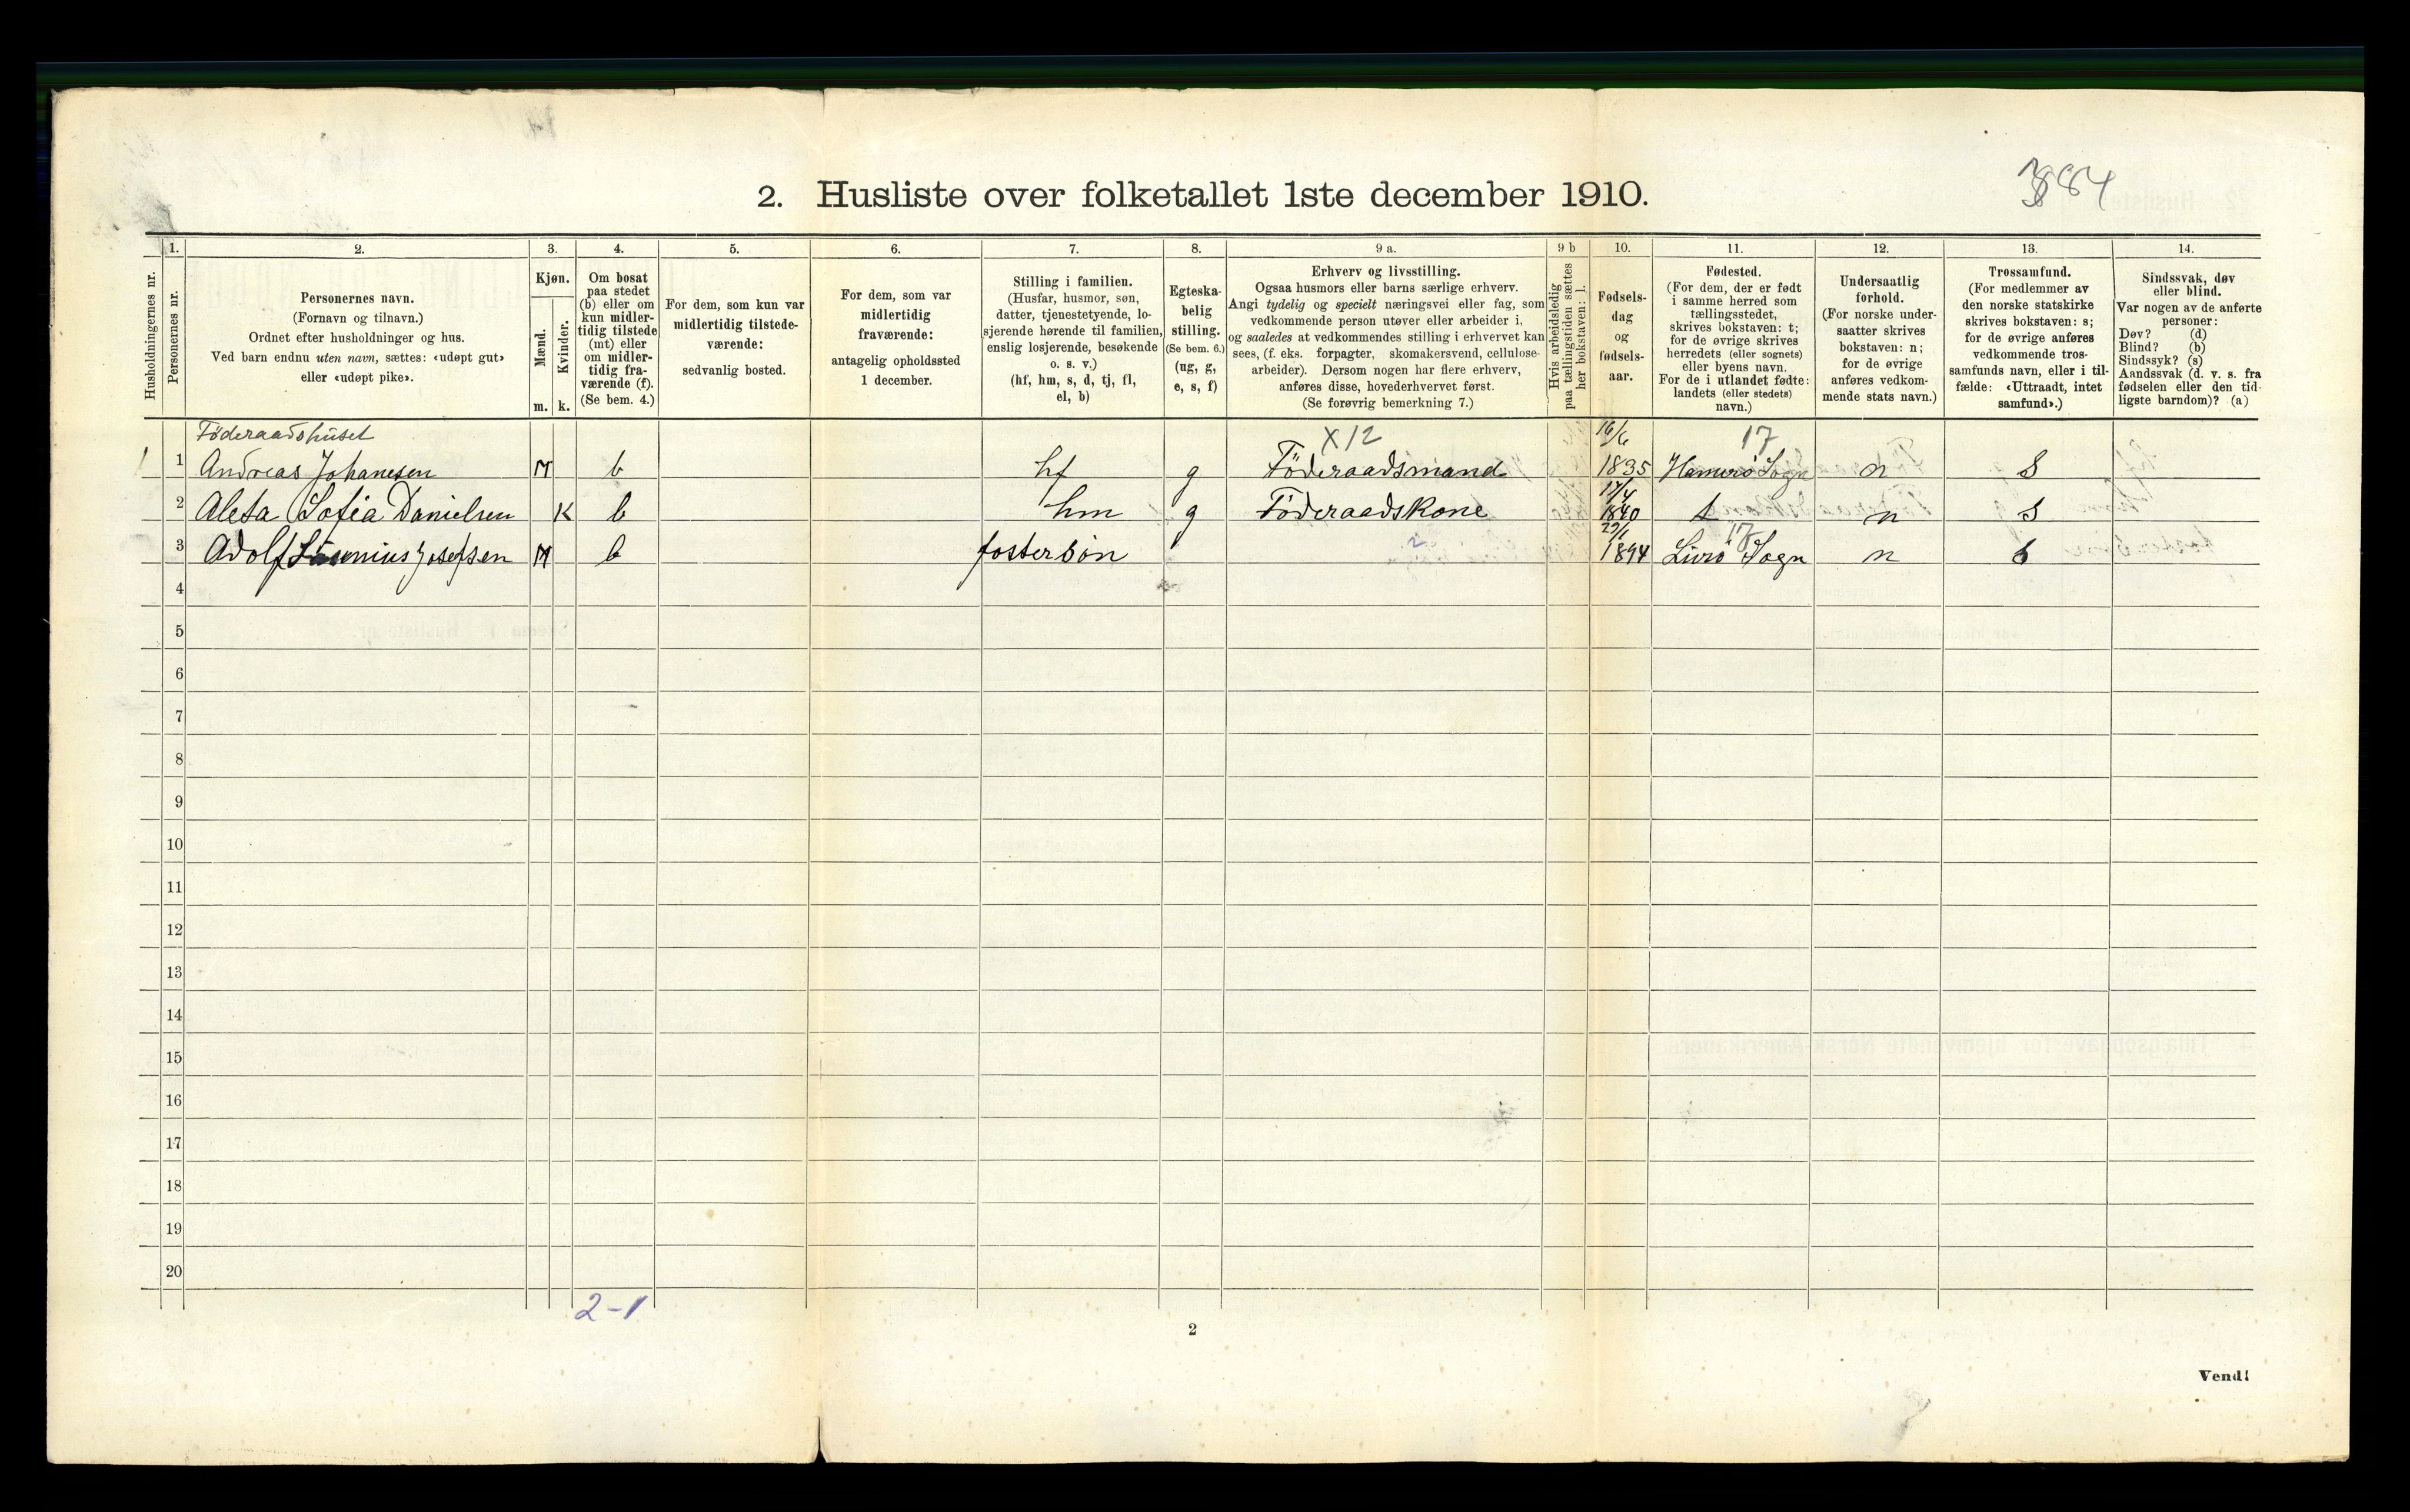 884
2. Husliste over folketallet 1ste december 1910.
Husholdningernes nr.
1. Personernes nr.
2. Personernes navn.
(Fornavn og tilnavn.)
Ordnet efter husholdninger og hus.
Ved barn endnu uten navn, sættes: «udøpt gut»
eller «udøpt pike».
3. Kjøn.
Mænd. Kvinder.
m. k.
4. Om bosat
paa stedet
(b) eller om
kun midler-
tidig tilstede
(mt) eller
om midler-
tidig fra-
værende (f).
(Se bem. 4.)
5. For dem, som kun var
midlertidig tilstede-
værende:
sedvanlig bosted.
6. For dem, som var
midlertidig
fraværende:
antagelig opholdssted
1 december.
7. Stilling i familien.
(Husfar, husmor, søn,
datter, tjenestetyende, lo-
sjerende hørende til familien,
enslig losjerende, besøkende
o. s. v.)
(hf, hm, s, d, tj, fl,
el, b)
8. Egteska-
belig
stilling.
(Se bem. 6.)
(ug, g,
e, s, f)
9 a. Erhverv og livsstilling.
Ogsaa husmors eller barns særlige erhverv.
Angi tydelig og specielt næringsvei eller fag, som
vedkommende person utøver eller arbeider i,
og saaledes at vedkommendes stilling i erhvervet kan
sees, (f. eks. forpagter, skomakersvend, cellulose-
arbeider). Dersom nogen har flere erhverv,
anføres disse, hovederhvervet først.
(Se forøvrig bemerkning 7.)
9 b Hvis arbeidsledig
paa tællingstiden sættes
her bokstaven: l.
10. Fødsels-
dag
og
fødsels-
aar.
11. Fødested.
(For dem, der er født
i samme herred som
tællingsstedet,
skrives bokstaven: t;
for de øvrige skrives
herredets (eller sognets)
eller byens navn.
For de i utlandet fødte:
landets (eller stedets)
navn.)
12. Undersaatlig
forhold.
(For norske under-
saatter skrives
bokstaven: n;
for de øvrige
anføres vedkom-
mende stats navn.)
13. Trossamfund.
(For medlemmer av
den norske statskirke
skrives bokstaven: s;
for de øvrige anføres
vedkommende tros-
samfunds navn, eller i til-
fælde: «Uttraadt, intet
samfund».)
14. Sindssvak, døv
eller blind.
Var nogen av de anførte
personer:
Døv? (d)
Blind? (b)
Sindssyk? (s)
Aandssvak (d. v. s. fra
fødselen eller den tid-
ligste barndom)? (a)
Föderaadshuset X12 16/6 17
1 1 Andreas Johanesen M b hf g Föderaadsmand 1835 Hamerö Sogn n S
2 Aleta Sofia Danielsen K b hm g Föderaadskone 17/4 1840 t n S
3 Adolf Josefsen M b fostersön 29/1 1894 17 Sogn n S
4
5
6
7
8
9
10
11
12
13
14
15
16
17
18
19
20
2-1
2
Vend!